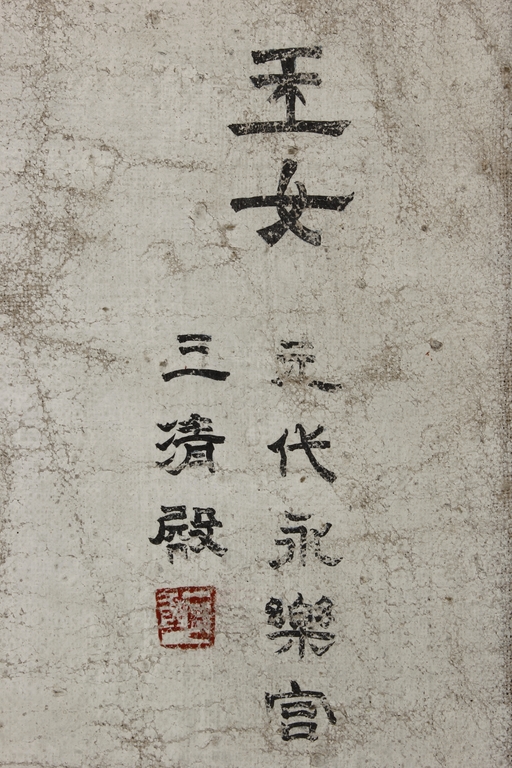 玉女
元代永樂宫
三清殿